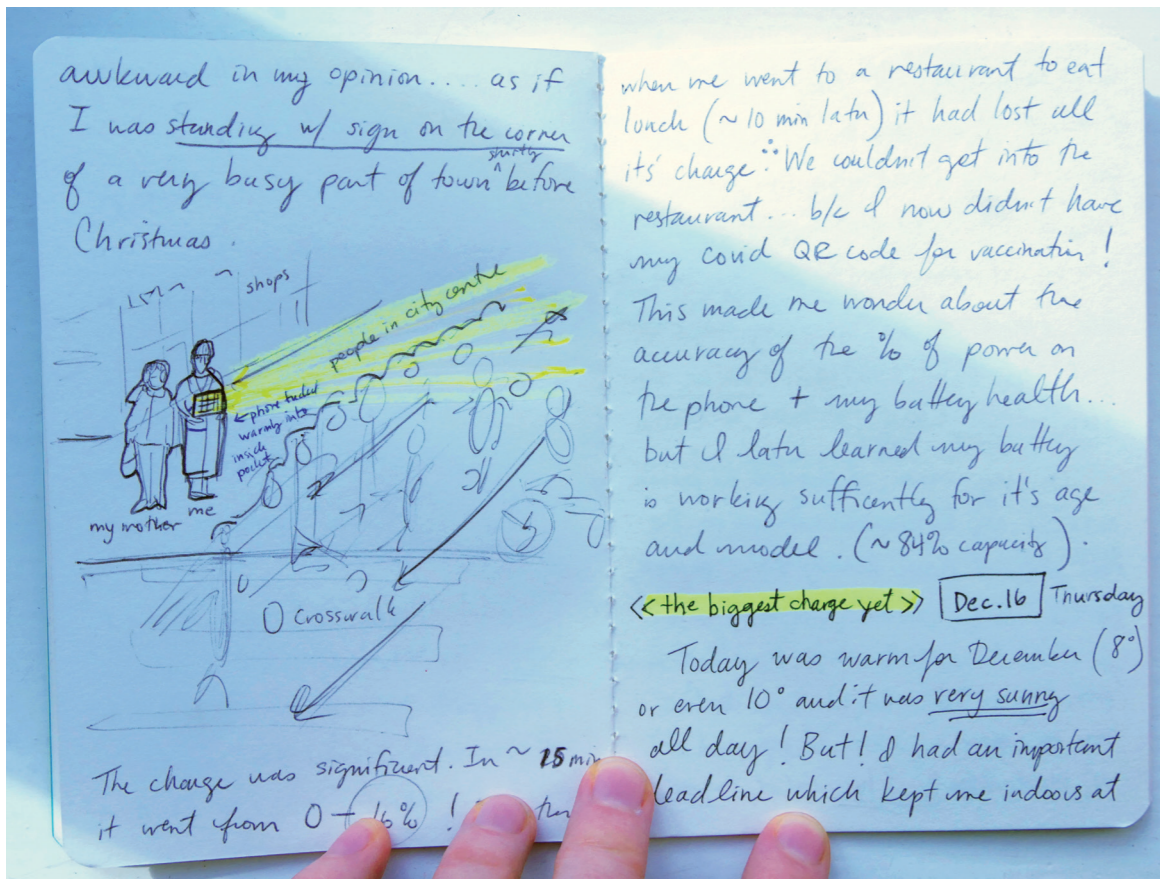 awkward in my opinion.... as if
I was standing w/ sign on the corner
of a very busy part of town ^ shortly before
Christmas.
shops
people in city centre
← phone tucked
warmly into
inside
pocket
my mother
me
Crosswalk
The charge was significant. In ~ 15 min
it went from 0 → 16% !
when me went to a restaurant to eat
lunch (~10 min later) it had lost all
its' charge ∴ We couldn't get into the
restaurant... b/c I now didn't have
my covid QR code for vaccination!
This made me wonder about the
accuracy of the % of power on
the phone + my battery health...
but I later learned my battery
is working sufficently for it's age
and model. (~84% capacity).
<< the biggest charge yet >> Dec.16 Thursday
Today was warm for December (8°)
or even 10° and it was very sunny
all day! But! I had an important
deadline which kept me indoors at